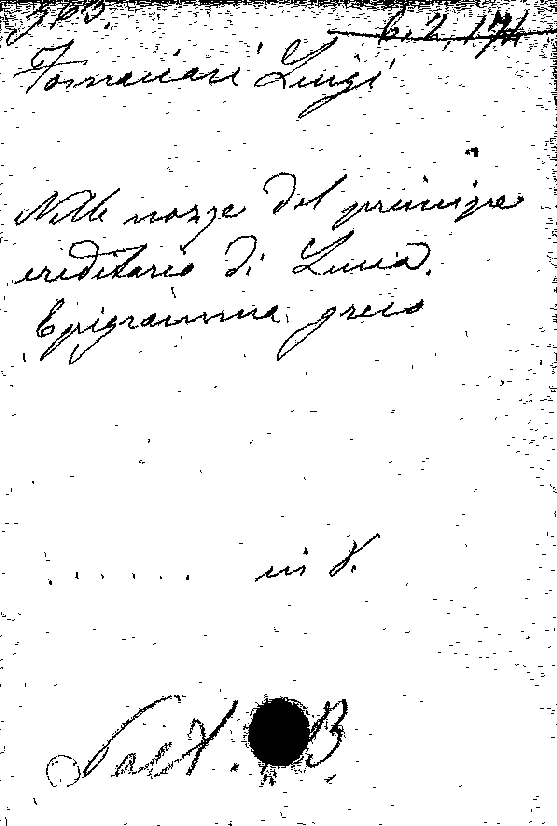 b. 2. 174
Fornaciari Luigi
Nelle nozze del principe
ereditario di Lucca.
Epigramma greco
. . . . . . in 8.
B